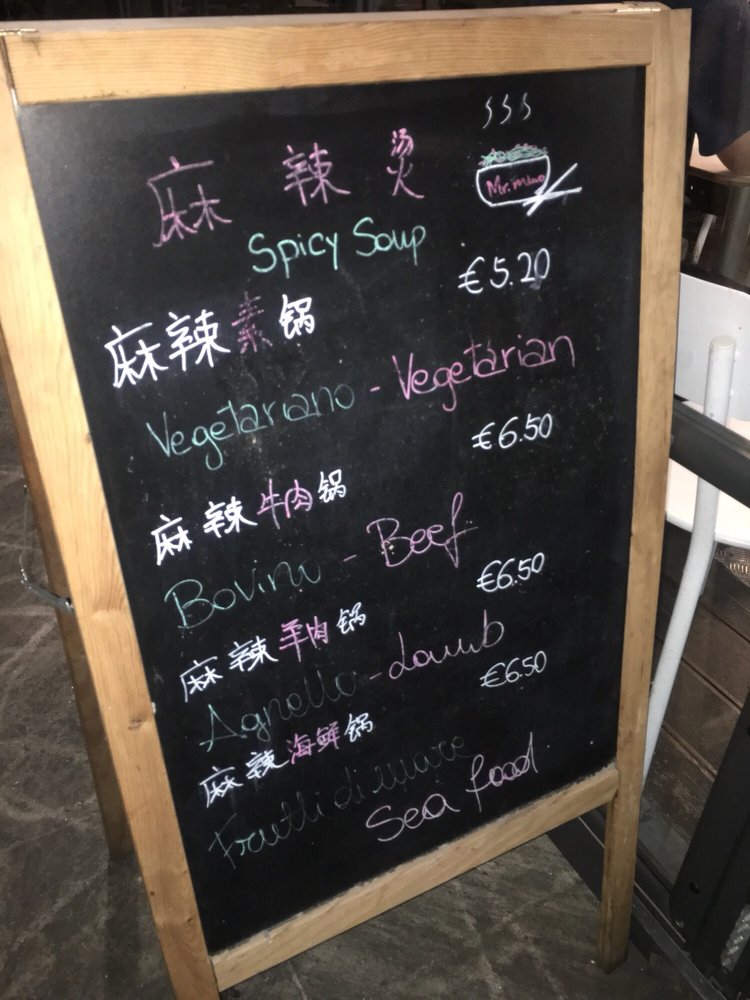 麻辣烫
Mr. Miao
Spicy Soup
€5.20
麻辣素锅
Vegetariano - Vegetarian
€6.50
麻辣牛肉锅
Bovino - Beef
€6.50
麻辣羊肉锅
Agnello - Lamb
€6.50
麻辣海鲜锅
Frutti di mare
Sea food